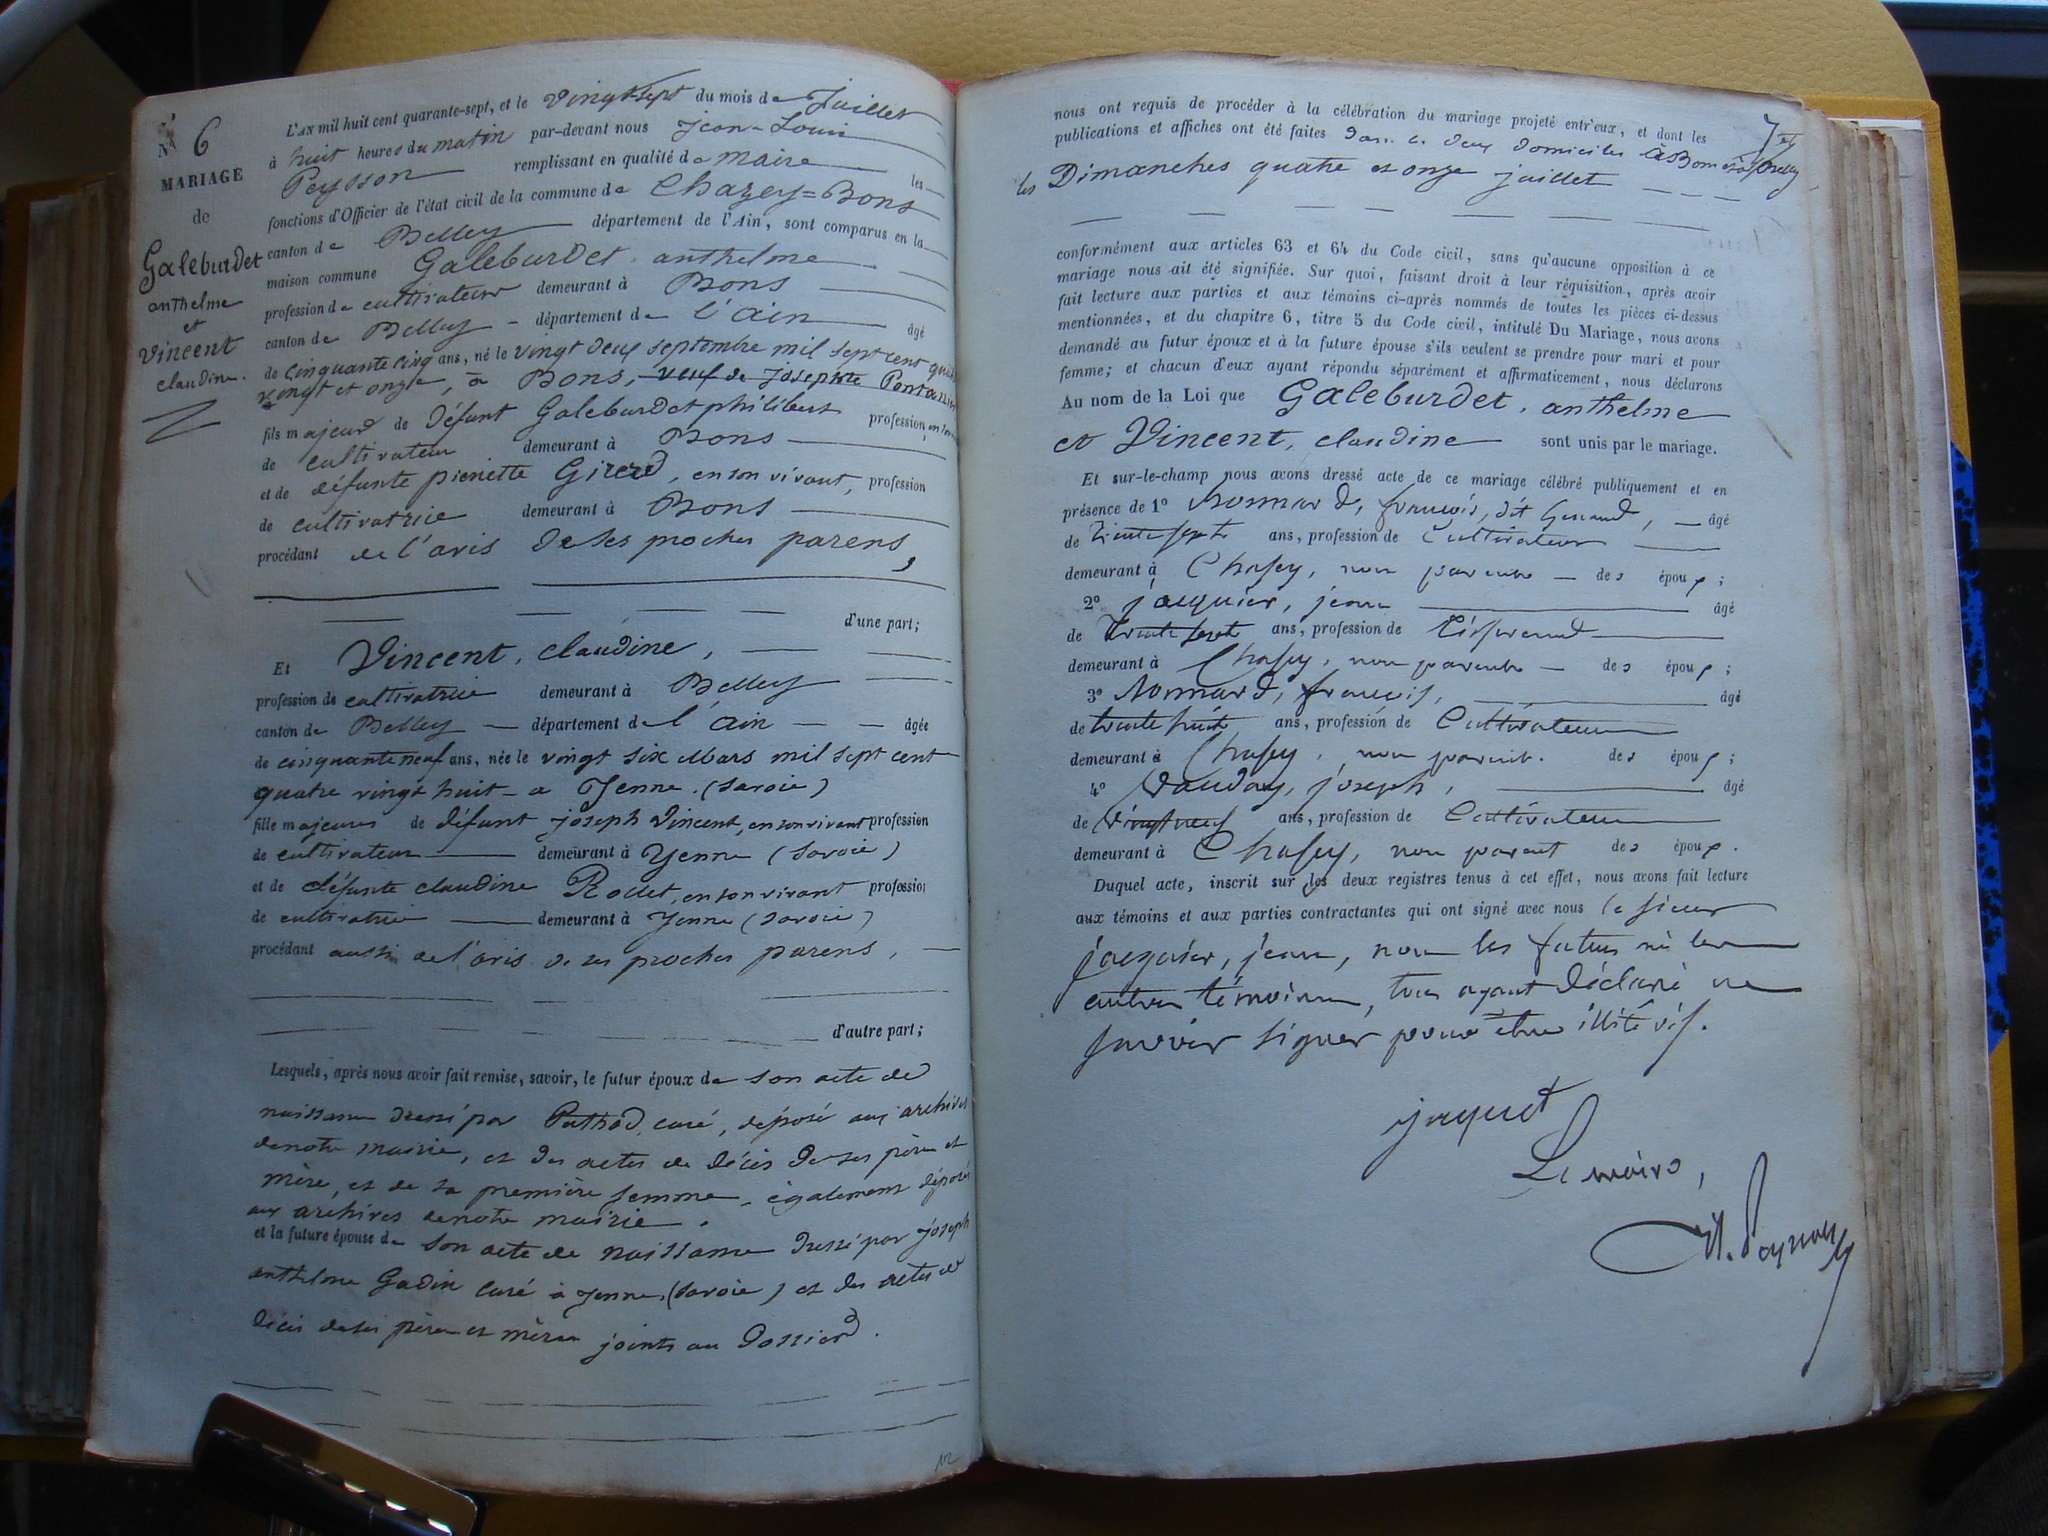 N° 6
MARIAGE
de
Galeburdet
anthelme
et
Vincent
claudine.
L'AN mil huit cent quarante-sept, et le vingt-sept du mois de Juillet
à huit heures du matin par-devant nous Jean-Louis
Peysson remplissant en qualité de maire les
fonctions d'Officier de l'état civil de la commune de Chazey=Bons
canton de Belley département de l'Ain, sont comparus en la
maison commune Galeburdet, anthelme
profession de cultivateur demeurant à Bons
canton de Belley département de l'ain âgé
de cinquante cinq ans, né le vingt deux septembre mil sept cent quatre
vingt et onze, à Bons, veuf de Josephte
fils majeur de défunt Galeburdet philibert profession
de cultivateur demeurant à Bons
et de défunte pierrette Girerd, en son vivant, profession
de cultivatrice demeurant à Bons
procédant de l'avis de ses proches parens,
d'une part;
Et Vincent, claudine,
profession de cultivatrice demeurant à Belley
canton de Belley département de l'ain âgée
de cinquante neuf ans, née le vingt six Mars mil sept cent
quatre vingt huit a Yenne (Savoie)
fille majeure de défunt joseph Vincent, en son vivant profession
de cultivateur demeurant à Yenne (Savoie)
et de défunte claudine Rollet, en son vivant profession
de cultivatrice demeurant à Yenne (Savoie)
procédant aussi de l'avis de ses proches parens,
d'autre part;
Lesquels, après nous avoir fait remise, savoir, le futur époux de son acte de
naissance dressé par curé, déposé aux archives
de notre mairie, et des actes de décès de ses père et
mère, et de sa première femme, également déposés
aux archives de notre mairie.
et la future épouse de son acte de naissance dressé par joseph
anthelme Gadin curé à Yenne (Savoie) et des actes de
décès de ses père et mère joints au dossier.
nous ont requis de procéder à la célébration du mariage projeté entr'eux, et dont les
publications et affiches ont été faites dans les deux domiciles à Bons et à Belley
les Dimanches quatre et onze juillet
conformément aux articles 63 et 64 du Code civil, sans qu'aucune opposition à ce
mariage nous ait été signifiée. Sur quoi, faisant droit à leur réquisition, après avoir
fait lecture aux parties et aux témoins ci-après nommés de toutes les pièces ci-dessus
mentionnées, et du chapitre 6, titre 5 du Code civil, intitulé Du Mariage, nous avons
demandé au futur époux et à la future épouse s'ils veulent se prendre pour mari et pour
femme; et chacun d'eux ayant répondu séparément et affirmativement, nous déclarons
Au nom de la Loi que Galeburdet, anthelme
et Vincent, claudine sont unis par le mariage.
Et sur-le-champ nous avons dressé acte de ce mariage célébré publiquement et en
présence de 1° françois, dit âgé
de trente sept ans, profession de Cultivateur
demeurant à Chasey, non parent des époux;
2° jacquier, jean âgé
de trente sept ans, profession de Tisserand
demeurant à Chasey, non parent des époux;
3° françois, âgé
de trente huit ans, profession de Cultivateur
demeurant à Chasey, non parent des époux;
4° joseph, âgé
de vingt neuf ans, profession de Cultivateur
demeurant à Chasey, non parent des époux.
Duquel acte, inscrit sur les deux registres tenus à cet effet, nous avons fait lecture
aux témoins et aux parties contractantes qui ont signé avec nous le sieur
jacquier, jean, non les futurs ni les
autres témoins, tous ayant déclaré ne
savoir signer pour être illitérés.
Le maire,